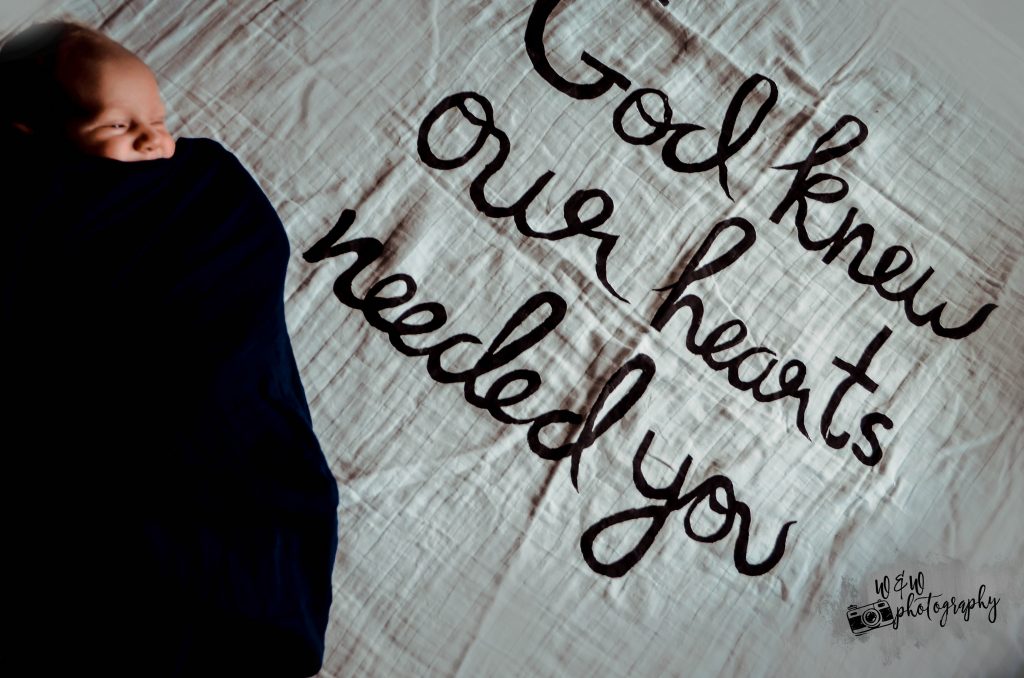 God knew
our hearts
needed you
W&W
photography